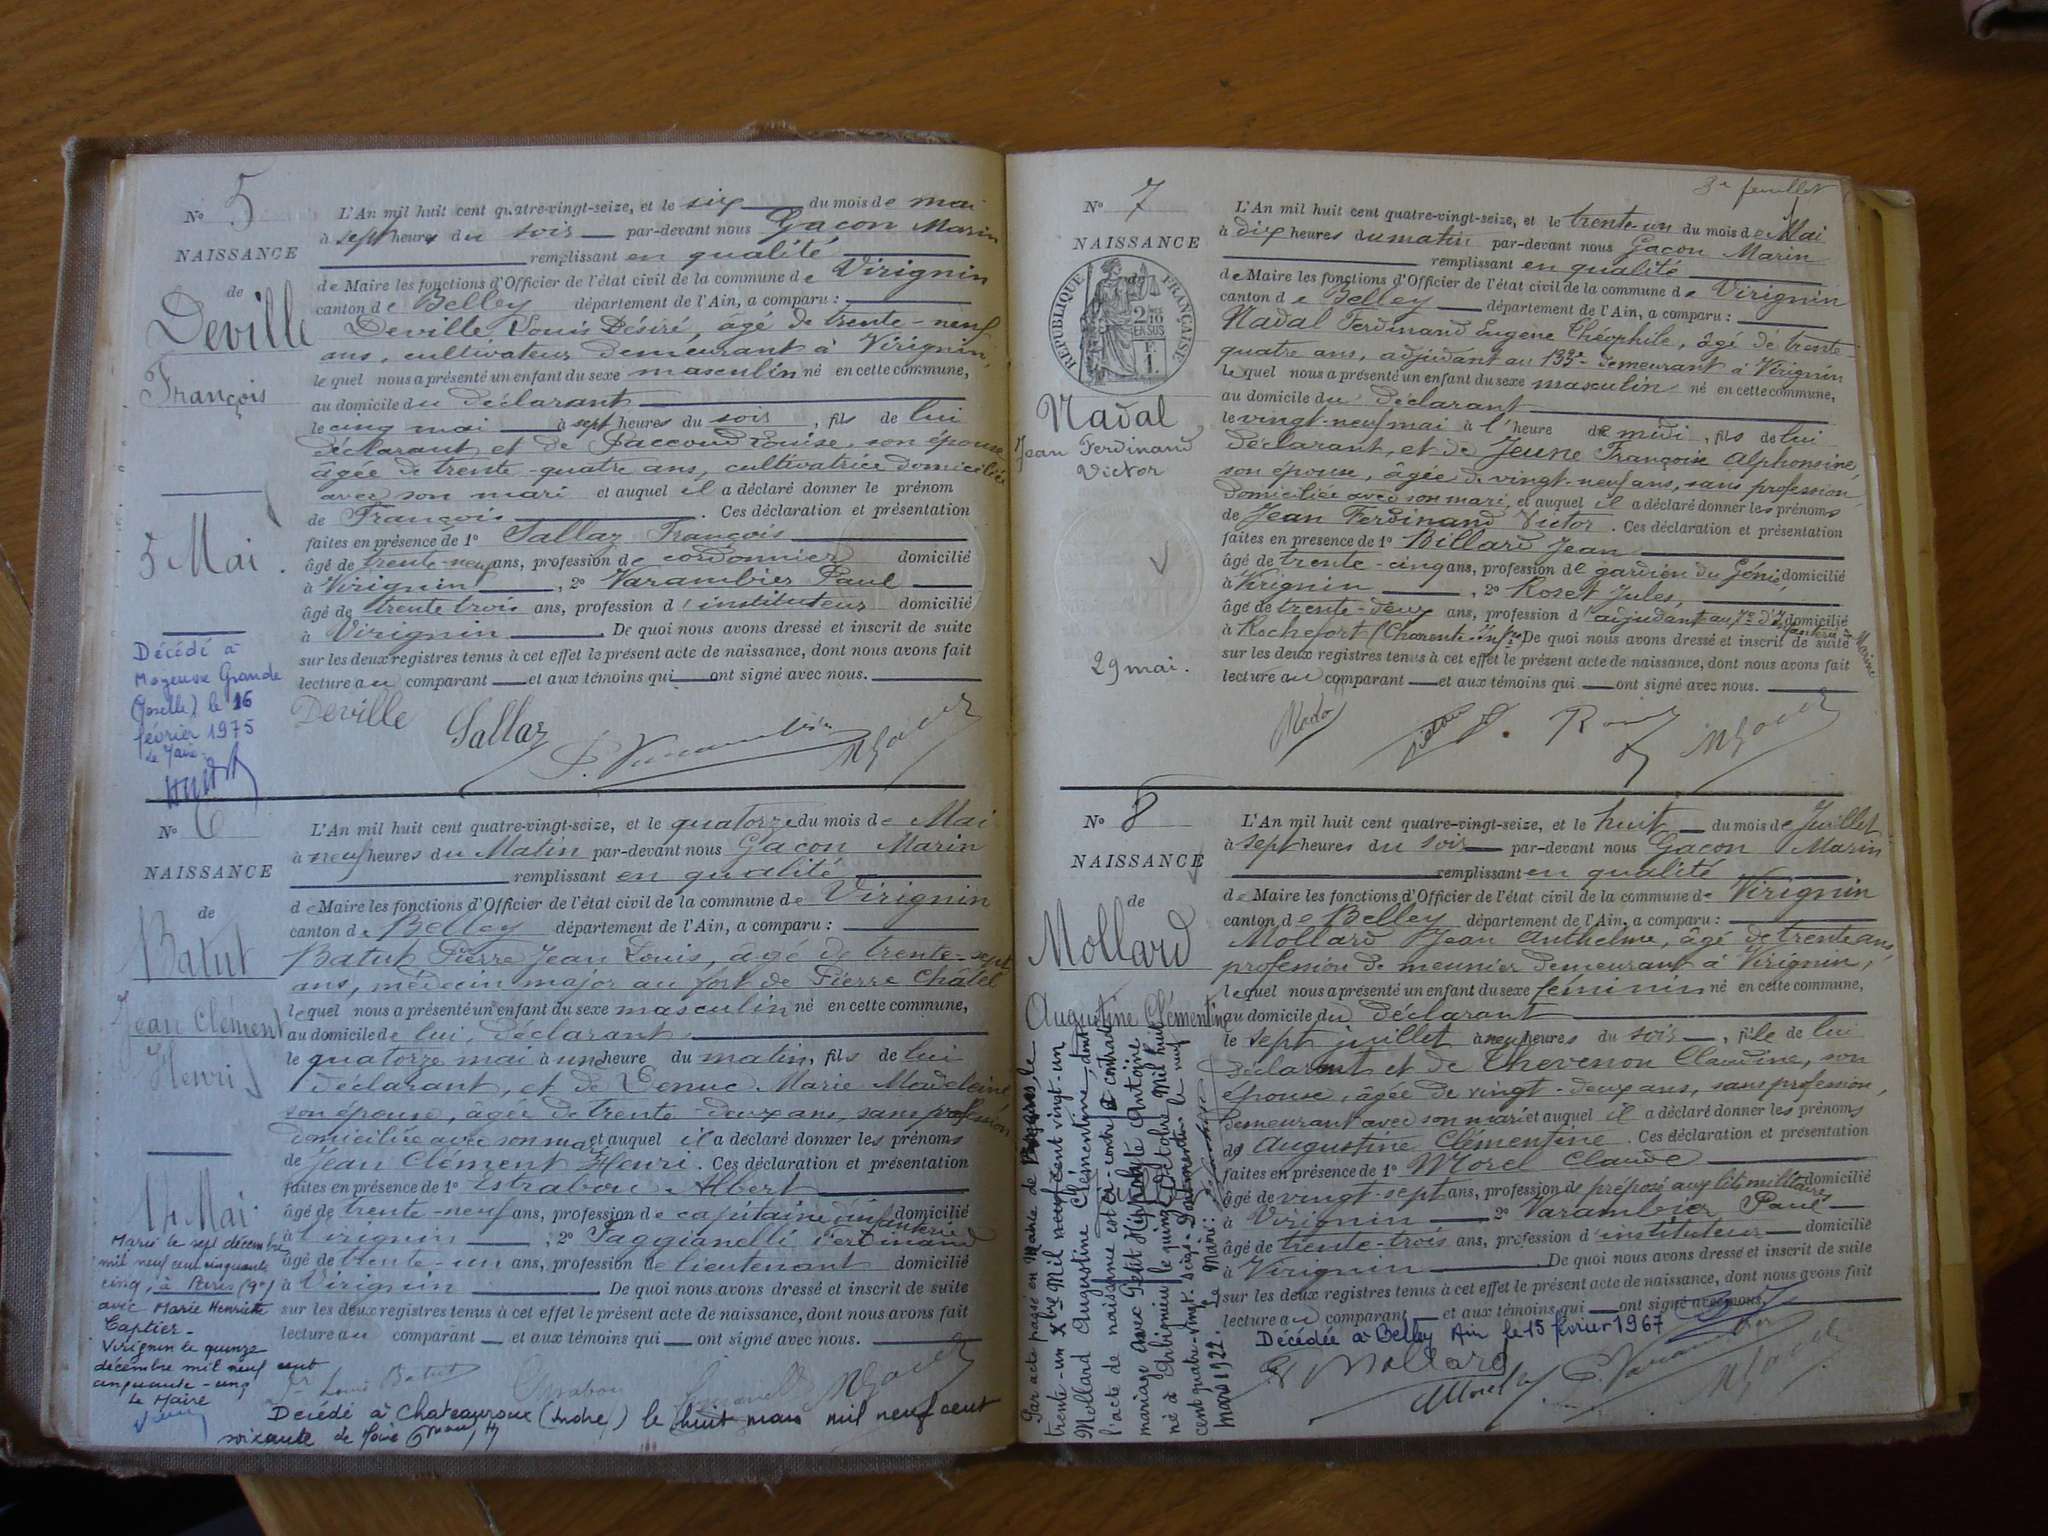 Nº 5
NAISSANCE
de
Deville
François
5 Mai.
Décédé à
Moyeuvre Grande
(Moselle) le 16
février 1975
le Maire
L'An mil huit cent quatre-vingt-seize, et le six du mois de mai
à sept heures du soir par-devant nous Gacon Marin
remplissant en qualité
de Maire les fonctions d'Officier de l'état civil de la commune de Virignin
canton de Belley département de l'Ain, a comparu :
Deville Louis Désiré, âgé de trente-neuf
ans, cultivateur demeurant à Virignin,
lequel nous a présenté un enfant du sexe masculin né en cette commune,
au domicile du déclarant
le cinq mai à sept heures du soir, fils de lui
déclarant et de Jaccoud Louise, son épouse
âgée de trente-quatre ans, cultivatrice domiciliée
avec son mari et auquel il a déclaré donner le prénom
de François. Ces déclaration et présentation
faites en présence de 1º Sallaz François
âgé de trente-neuf ans, profession de cordonnier domicilié
à Virignin, 2º Varambier Paul
âgé de trente trois ans, profession d'instituteur domicilié
à Virignin. De quoi nous avons dressé et inscrit de suite
sur les deux registres tenus à cet effet le présent acte de naissance, dont nous avons fait
lecture au comparant et aux témoins qui ont signé avec nous.
Deville Sallaz P. Varambier M Gacon
Nº 6
NAISSANCE
de
Batut
Jean Clément
Henri
14 Mai
Marié le sept décembre
mil neuf cent cinquante
cinq, à Paris (9e)
avec Marie Henriette
Captier-
Virignin le quinze
décembre mil neuf cent
cinquante-cinq
Le Maire
L'An mil huit cent quatre-vingt-seize, et le quatorze du mois de Mai
à neuf heures du Matin par-devant nous Gacon Marin
remplissant en qualité
de Maire les fonctions d'Officier de l'état civil de la commune de Virignin
canton de Belley département de l'Ain, a comparu :
Batut Pierre Jean Louis, âgé de trente-sept
ans, médecin major au fort de Pierre Châtel
lequel nous a présenté un enfant du sexe masculin né en cette commune,
au domicile de lui, déclarant
le quatorze mai à une heure du matin, fils de lui
déclarant, et de Denuc Marie Madeleine
son épouse, âgée de trente-deux ans, sans profession
domiciliée avec son mari et auquel il a déclaré donner les prénoms
de Jean Clément Henri. Ces déclaration et présentation
faites en présence de 1º Estrabou Albert
âgé de trente-neuf ans, profession de capitaine d'infanterie domicilié
à Virignin, 2º Paggianelli Ferdinand
âgé de trente-un ans, profession de lieutenant domicilié
à Virignin. De quoi nous avons dressé et inscrit de suite
sur les deux registres tenus à cet effet le présent acte de naissance, dont nous avons fait
lecture au comparant et aux témoins qui ont signé avec nous.
Dr Louis Batut M Gacon
Décédé à Chateauroux (Indre) le huit mars mil neuf cent
soixante le Maire
3e feuillet
Nº 7
NAISSANCE
RÉPUBLIQUE FRANÇAISE
2/10 EN SUS
F. 1
Nadal
Jean Ferdinand
Victor
29 mai.
L'An mil huit cent quatre-vingt-seize, et le trente un du mois de Mai
à dix heures du matin par-devant nous Gacon Marin
remplissant en qualité
de Maire les fonctions d'Officier de l'état civil de la commune de Virignin
canton de Belley département de l'Ain, a comparu :
Nadal Ferdinand Eugène Théophile, âgé de trente-
quatre ans, adjudant au 133e demeurant à Virignin
lequel nous a présenté un enfant du sexe masculin né en cette commune,
au domicile du déclarant
le vingt-neuf mai à l'heure de midi, fils de lui
déclarant, et de Jeune Françoise Alphonsine,
son épouse, âgée de vingt-neuf ans, sans profession,
domiciliée avec son mari, et auquel il a déclaré donner les prénoms
de Jean Ferdinand Victor. Ces déclaration et présentation
faites en présence de 1º Billard Jean
âgé de trente-cinq ans, profession de gardien du Génie domicilié
à Virignin, 2º Roset Jules,
âgé de trente-deux ans, profession d'adjudant au 7e d'Infanterie de Marine domicilié
à Rochefort (Charente-Infre) De quoi nous avons dressé et inscrit de suite
sur les deux registres tenus à cet effet le présent acte de naissance, dont nous avons fait
lecture au comparant et aux témoins qui ont signé avec nous.
Nadal M Gacon
Nº 8
NAISSANCE
de
Mollard
Augustine Clémentine
Par acte passé en Mairie de le
trente-un Xbre Mil neuf cent vingt-un
Mollard Augustine Clémentine, dont
l'acte de naissance est ci-contre a contracté
mariage avec Petit Hippolyte Antoine
né à Arbignieu le quinze Octobre Mil huit
cent quatre-vingt-seize. Pour mention le neuf
mars 1922. Le Maire:
L'An mil huit cent quatre-vingt-seize, et le huit du mois de Juillet
à sept heures du soir par-devant nous Gacon Marin
remplissant en qualité
de Maire les fonctions d'Officier de l'état civil de la commune de Virignin
canton de Belley département de l'Ain, a comparu :
Mollard Jean Anthelme, âgé de trente ans,
profession de meunier demeurant à Virignin,
lequel nous a présenté un enfant du sexe féminin né en cette commune,
au domicile du déclarant
le sept juillet à neuf heures du soir, fille de lui
déclarant et de Thevenon Claudine, son
épouse, âgée de vingt-deux ans, sans profession,
demeurant avec son mari et auquel il a déclaré donner les prénoms
de Augustine Clémentine. Ces déclaration et présentation
faites en présence de 1º Morel Claude
âgé de vingt-sept ans, profession de préposé aux lits militaires domicilié
à Virignin 2º Varambier Paul
âgé de trente-trois ans, profession d'instituteur domicilié
à Virignin. De quoi nous avons dressé et inscrit de suite
sur les deux registres tenus à cet effet le présent acte de naissance, dont nous avons fait
lecture au comparant et aux témoins qui ont signé avec nous.
Décédée à Belley Ain le 15 février 1967
Mollard
Morel P. Varambier M Gacon